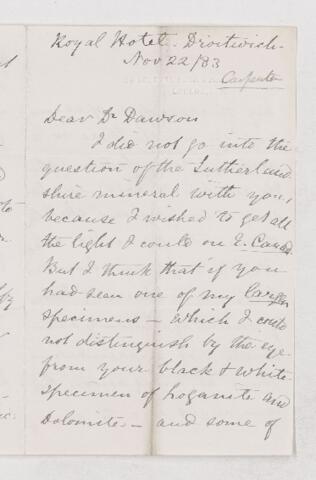 Royal Hotel. Droitwich.
Nov 22/83
Carpenter
Dear Dr Dawson
I did not go into the
question of the Sutherland
shire mineral with you,
because I wished to get all
the light I could on E. Canad.
But I think that if you
had seen one of my
specimens – which I could
not distinguish by the eye
from your black & white
specimen of loganite and
Dolomite – and some of